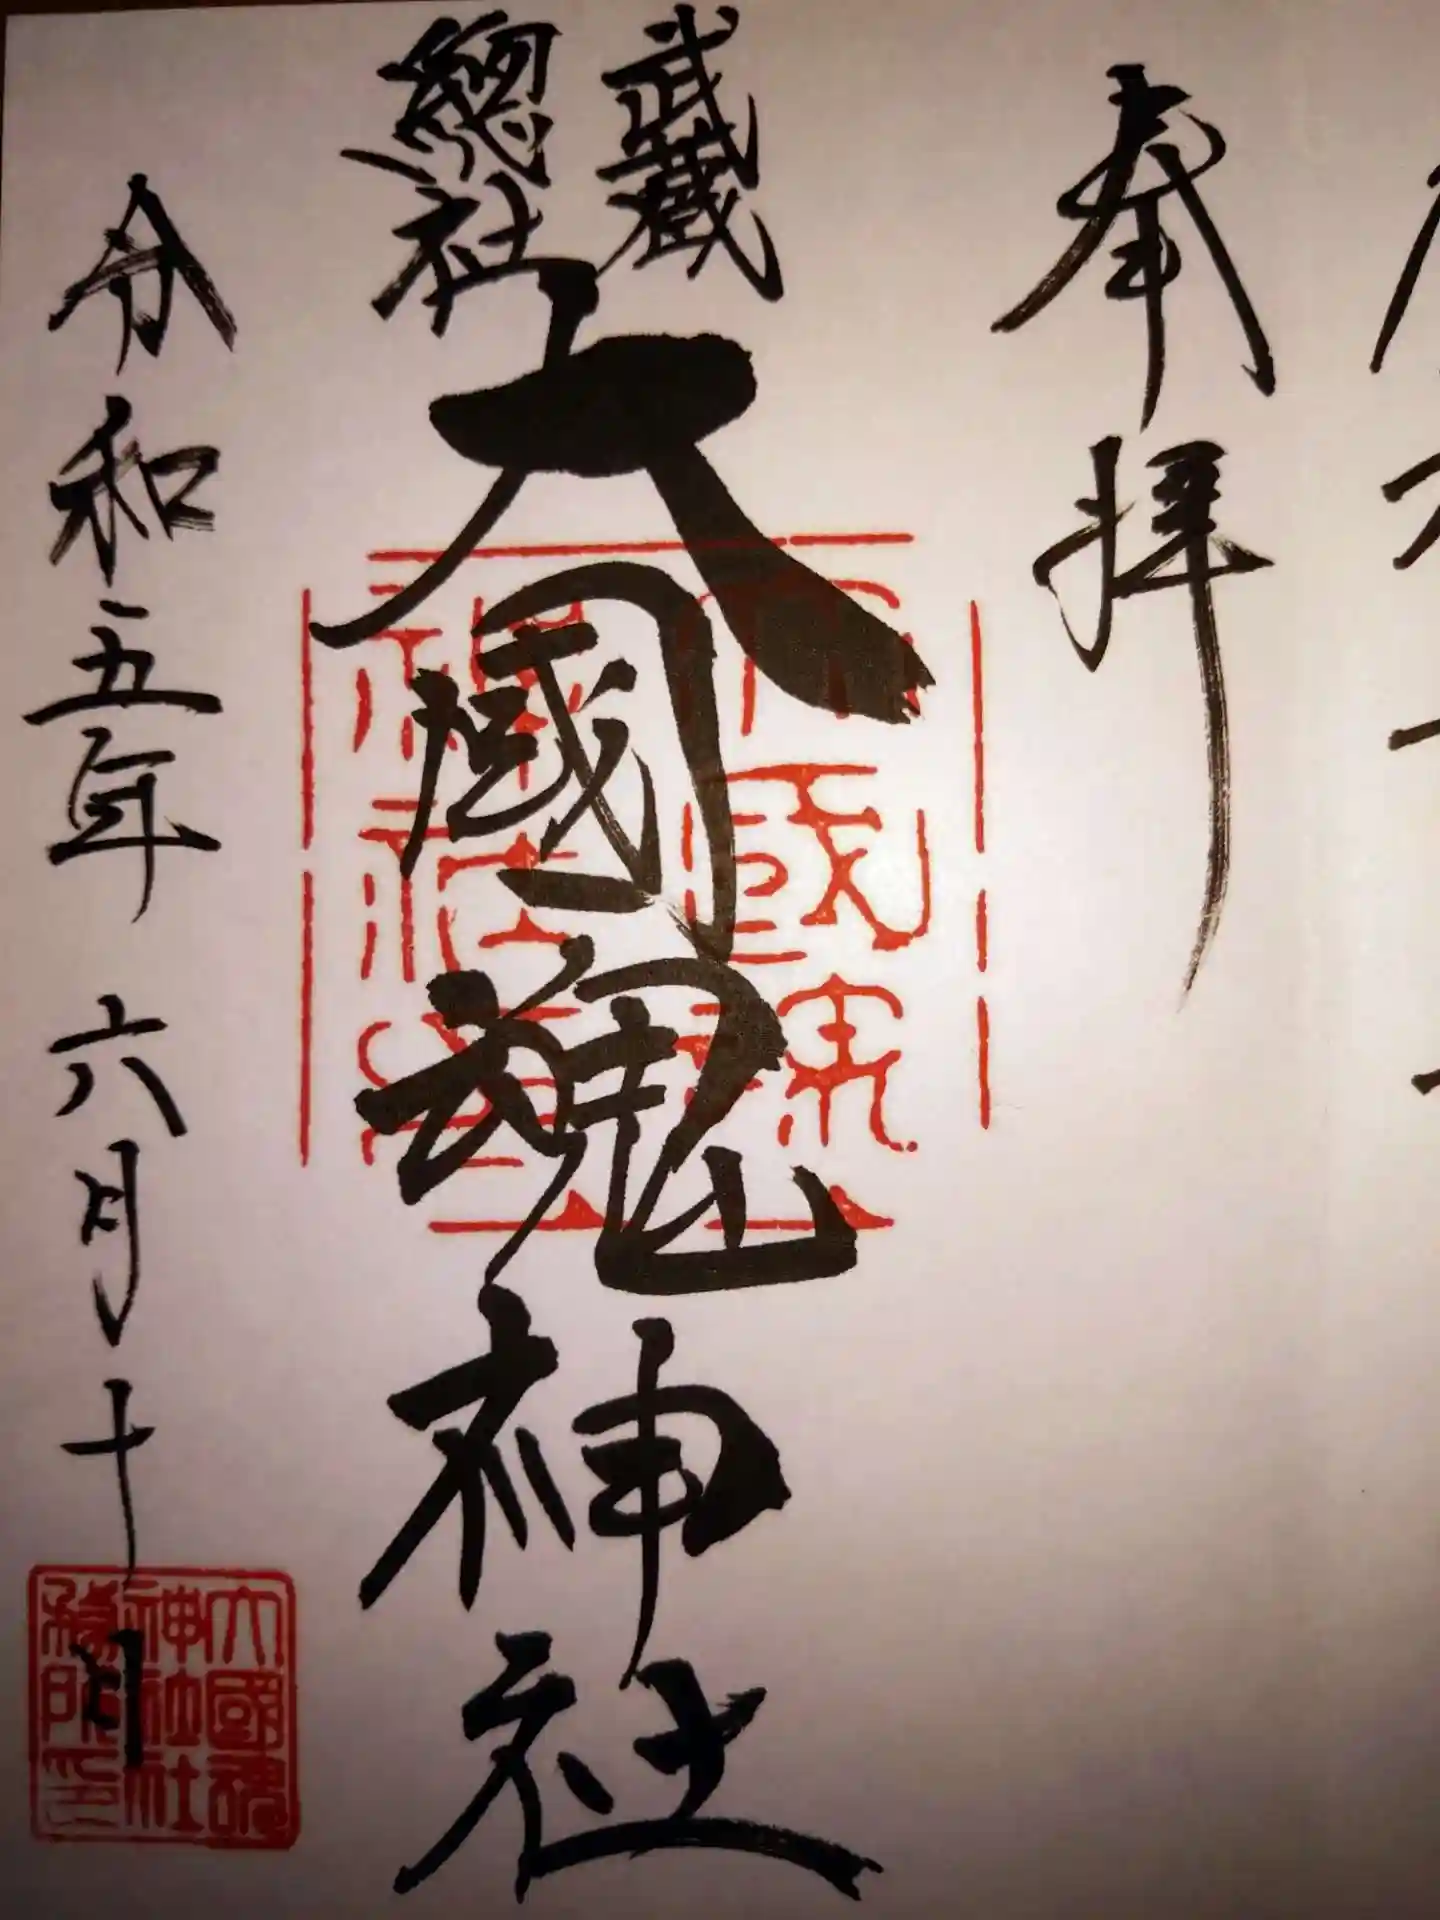 奉拝
武蔵
総社
大國魂神社
令和五年 六月十日
大國魂
神社社
務所印